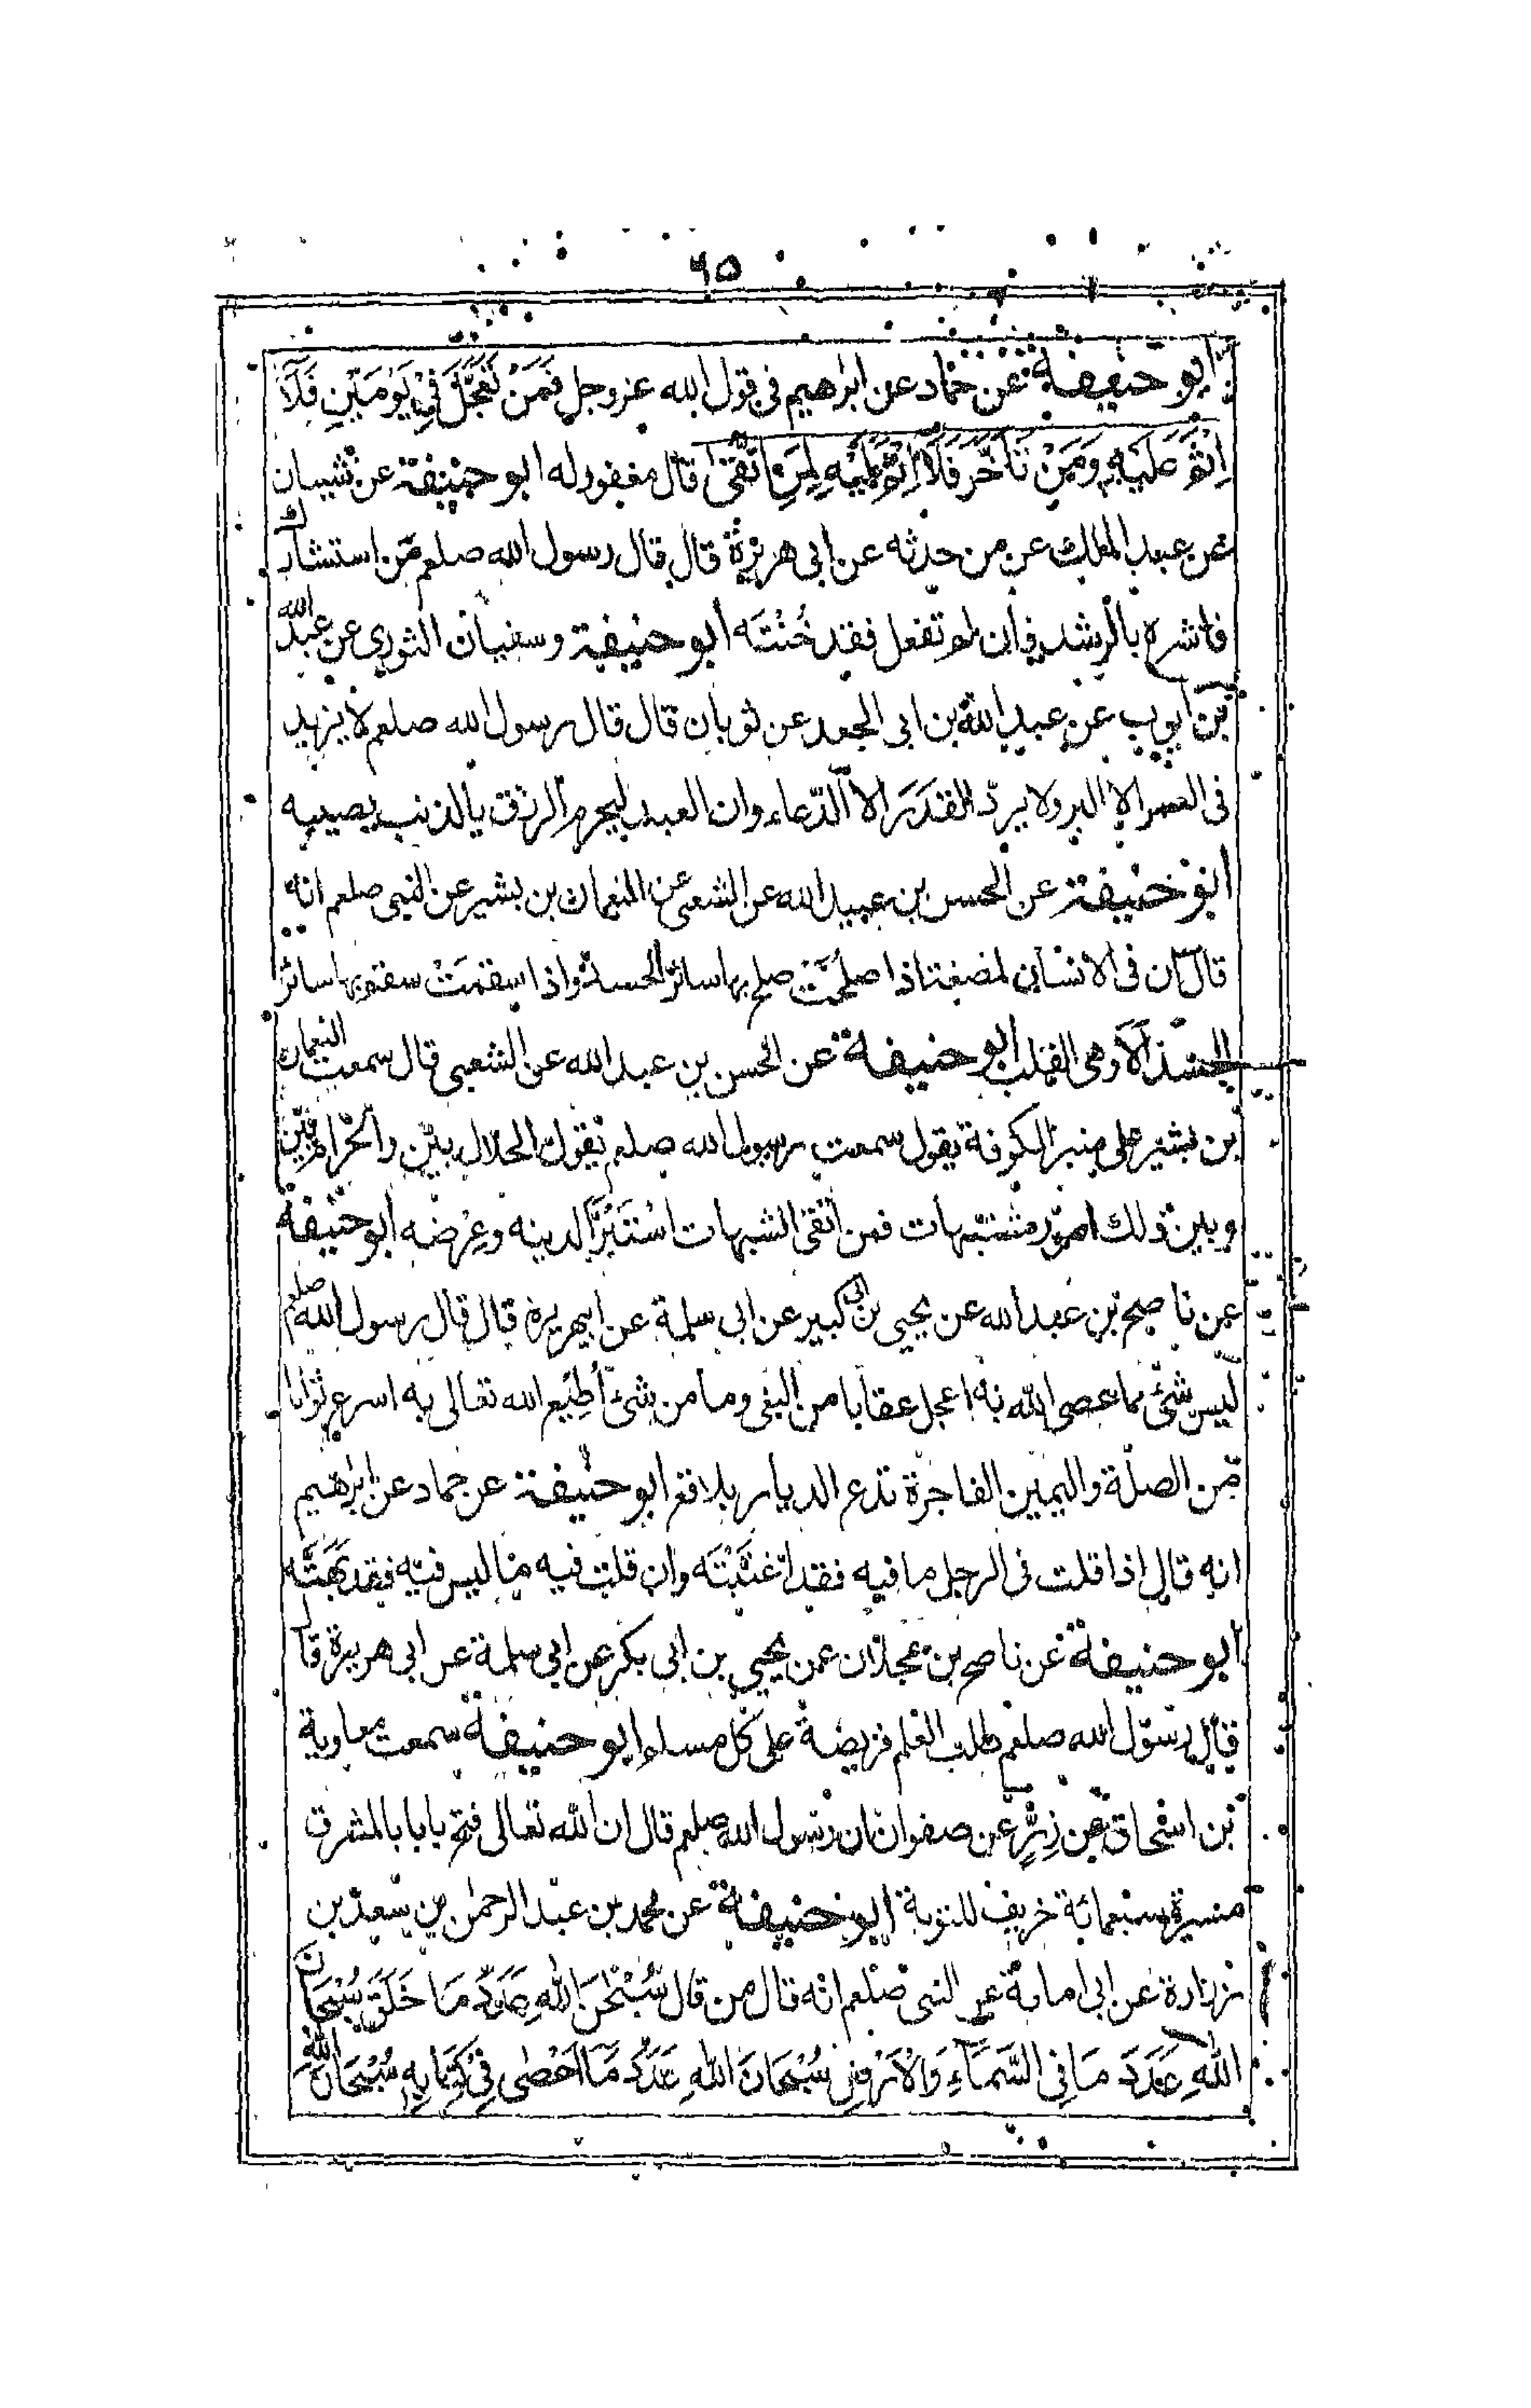 ٦٥
ابو حنيفة عن حماد عن ابراهيم فى قول الله عز وجل فَمَنْ تَعَجَّلَ فِيْ يَوْمَيْنِ فَلَآ
اِثْمَ عَلَيْهِ وَمَنْ تَاَخَّرَ فَلَآ اِثْمَ عَلَيْهِ لِمَنِ اتَّقٰى قال مغفور له ابو حنيفة عن شيبان
عن عبد الملك عن من حدثه عن ابى هريرة قال قال رسول الله صلعم من استشارك
فاشره بالرشد فان لم تفعل فقد خُنْتَه ابو حنيفة وسفيان الثورى عن عبد الله
بن ايوب عن عبد الله بن ابى الجعد عن ثوبان قال قال رسول الله صلعم لا يزيد
فى العمر الا البر ولا يردّ القدَرَ الا الدّعاء وان العبد ليحرم الرزق بالذنب يصيبه
ابو حنيفة عن الحسن بن عبيد الله عن الشعبى عن النعمان بن بشير عن النبى صلعم انه
قال ان فى الانسان لمضغة اذا صلُحَتْ صلح بها سائر الجسد واذا سقمَتْ سقم بها سائر
الجسد اَلَا وهى القلب ابو حنيفة عن الحسن بن عبد الله عن الشعبى قال سمعت النعمان
بن بشير على منبر الكوفة يقول سمعت رسول الله صلعم يقول الحلال بيّن والحرام بيّن
وبين ذلك امور مشتبهات فمن اتقى الشبهات اسْتَبْرَأَ لدينه وعِرْضه ابو حنيفة
عن ناصح بن عبد الله عن يحيى بن ابى كبير عن ابى سلمة عن ابيهريرة قال قال رسول الله صلعم
ليس شىء مما عصى الله به اعجل عقابا من البغى وما من شىء اُطِيْع الله تعالى به اسرع ثوابا
من الصلة واليمين الفاجرة تدع الديار بلاقع ابو حنيفة عن حماد عن ابراهيم
انه قال اذا قلت فى الرجل ما فيه فقد اغْتَبْتَه وان قلت فيه ما ليس فيه فقد بَهَتَّه
ابو حنيفة عن ناصح بن عجلان عن يحيى بن ابى بكر عن ابى سلمة عن ابى هريرة قال
قال رسول الله صلعم طلب العلم فريضة على كل مسلم ابو حنيفة سمعت معاوية
بن اسحاق عن زِرٍّ عن صفوان ان رسول الله صلعم قال ان الله تعالى فتح بابا بالمشرق
مسيرة سبعمائة خريف للتوبة ابو حنيفة عن محمد بن عبد الرحمٰن بن سعد بن
زرارة عن ابى امامة عن النبى صلعم انه قال من قال سُبْحٰنَ اللهِ عَدَدَ مَا خَلَقَ سُبْحَانَ
اللهِ عَدَدَ مَا فِى السَّمَآءِ وَالْاَرْضِ سُبْحَانَ اللهِ عَدَدَ مَآ اَحْصٰى فِيْ كِتَابِهٖ سُبْحَانَ اللهِ